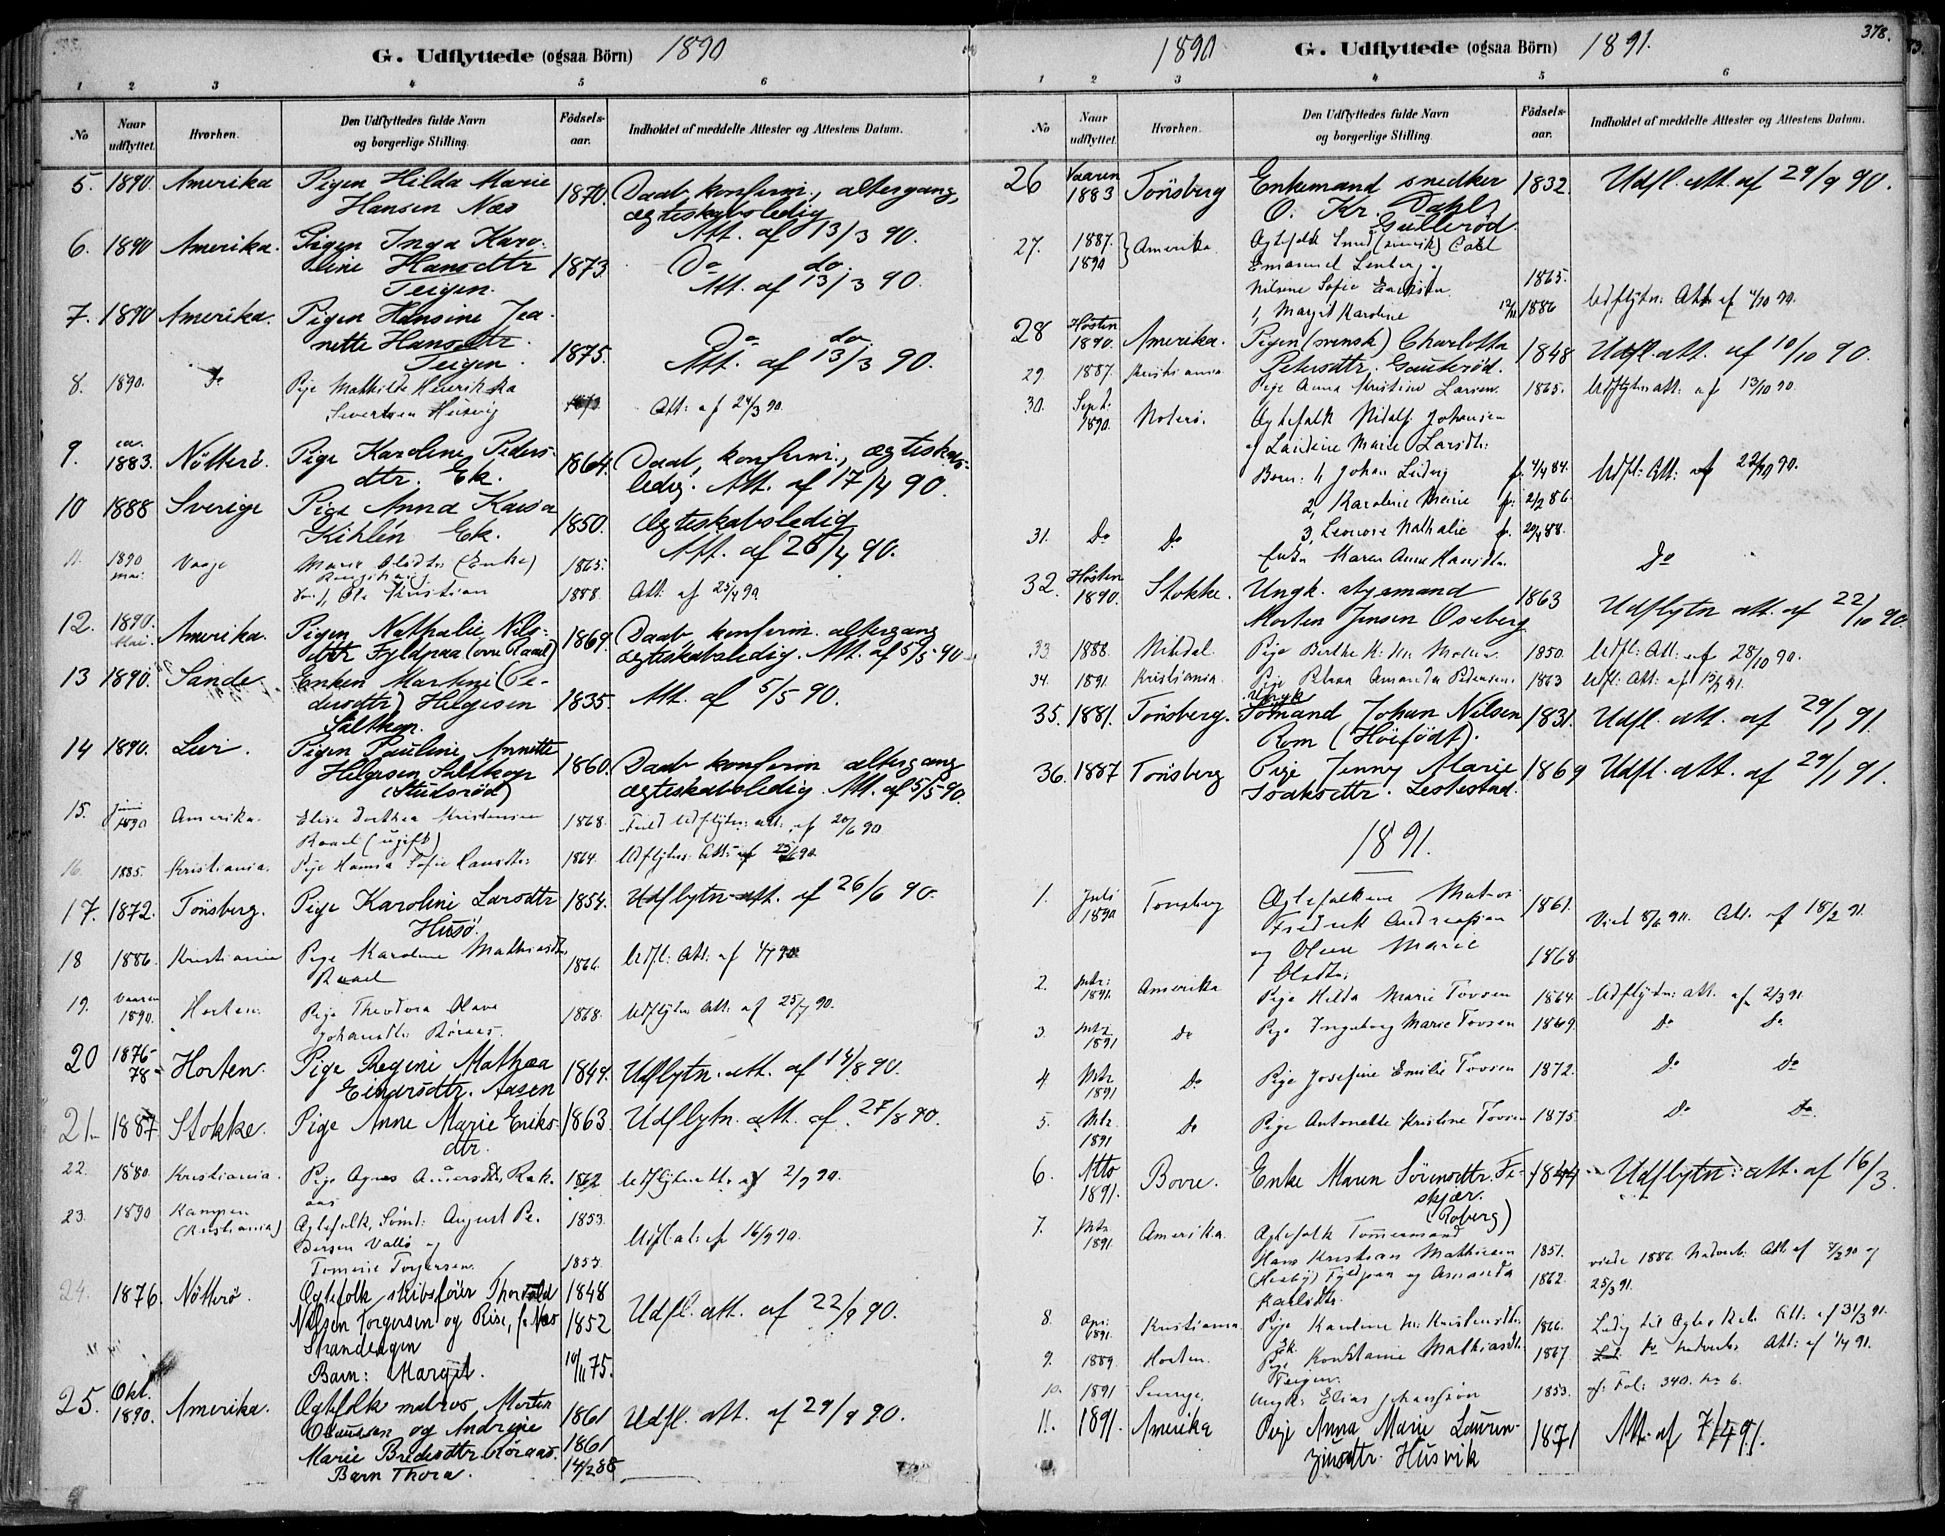 G. Udflyttede (ogsaa Börn) 1890
1 2 3 4 5 6
No
Naar udflyttet.
Hvorhen.
Den Udflyttedes fulde Navn og borgerlige Stilling.
Födsels-aar.
Indholdet af meddelte Attester og Attestens Datum.
5. 1890. Amerika Pigen Hilda Marie 1870. Daab, konfirm., altergang,
Hansen Næs ægteskabsledig
Att. af 13/3 90.
6. 1890 Amerika. Pigen Inga Karo-
line Hansdtr 1873 Do do.
Teigen. Att. af 13/3 90.
7. 1890 Amerika. Pigen Hansine Jea-
nette Hansdtr. 1875. Do do.
Teigen. Att. af 13/3 90.
8. 1890. Do Pige Mathilde Henrikka
Severtsen Husvig Att: af 24/3 90.
9. ca. 1883. Nötterö. Pige Karoline Peders- 1864. Daab, konfirm., ægteskabs-
dtr. Ek. ledig. Att. af 17/4 90.
10 1888 Sverige Pige Anna Kaisa 1850. Ægteskabsledig
Kihlén Ek. Att. af 26/4 90.
11. 1890 mai. Marie Olsdtr (Enke) 1865.
1, Ole Kristian 1888. Att: af 25/4 90
12. 1890. Mai. Amerika. Pigen Nathalie Nils- 1869. Daab, konfirm. altergang
dtr Fyldpaa (ovre Raael) ægteskabsledig. Att. af 5/5 90
13 1890. Sande. Enken Martine (Pe-
dersdtr) Helgesen 1835. Att. af 5/5 90.
Saltkop.
14 1890. Lier. Pigen Pauline Annette 1860. Daab konfirm altergang
Helgesen Saltkop ægteskabsledig. Att. af 5/5 90.
(Studsröd)
15. Juni 1890 Amerika. Elise Dorthea Kristensen 1868. Fuld Udflytn: att. af 20/6 90.
Raael (ugift)
16. 1885. Kristiania. Pige Hanna Sofie Hansdtr: 1864. Udflytn: Att: af 25/6 90
17. 1872. Tönsberg. Pige Karoline Larsdtr 1854. Udflytn. att. af 26/6 90.
Husö.
18 1886. Kristiania Pige Karoline Mathiasdtr. 1866. Udfl: Att: af 4/7 90
Raael
19. Vaaren 1890. Horten. Pige Theodora Olava 1868. Udflytn Att: af 25/7 90.
Johansdtr Röraas.
20 1876-78 Horten. Pige Regine Mathea 1844. Udflytn. att. af 14/8 90.
Einarsdtr. Aasen
21. 1887 Stokke. Pige Anne Marie Eriks- 1863. Udflytn. att. af. 27/8 90.
dtr.
22. 1880. Kristiania. Pige Agnes 1862 Udflytn att. af 2/9 90.
23. 1890 Kampen (Kristiania) Ægtefolk, Sömd: August Pe- 1853.
dersen Vallö og Udfl. at: af 16/9 90.
Tomine Torgersen. 1853.
24. 1876. Nötterö. Ægtefolk skibsförer Thorvald 1848
Nilsen Torgersen og Rise, f. Næs 1852 Udfl. att. af 22/9 90.
Strandengen
Barn: Margit. 10/11 75.
25. Okt. 1890. Amerika. Ægtefolk matros Morten 1861 Udfl. att. af 29/9 90.
Clausen og Andrine
Marie Bredesdtr Röraas. 1861
Barn Thora. 14/2 88
1890 G. Udflyttede (ogsaa Börn) 1891. 378.
1 2 3 4 5 6
No
Naar udflyttet.
Hvorhen.
Den Udflyttedes fulde Navn og borgerlige Stilling.
Födsels-aar.
Indholdet af meddelte Attester og Attestens Datum.
26 Vaaren 1883 Tönsberg Enkemand snedker 1832. Udfl. att. af 29/9 90.
O. Kr. Dahl,
Gulleröd.
27. 1887. 1890 } Amerika Ægtefolk Smed (svensk) Carl
Emanuel Lenberg og
Nilsine Sofie 1865.
1, Margit Karoline 12/11 1886 Udflytn: Att af 4/10 90.
28 Hösten 1890. Amerika. Pigen (svensk) Charlotta 1848 Udfl. att. af 10/10 90.
Petersdtr. Gauteröd.
29. 1887. Kristiania Pige Anna Kristine Larsen. 1865. Udflytn att: af 13/10 90.
30. Sept. 1890. Noterö. Ægtefolk Nidalf Johansen
og Laurine Marie Larsdtr:
Born: 1, Johan Ludvig f. 4/4 84. Udfl: Att: af 22/10 90.
2, Karoline Marie f: 2/2 86
3, Leonore Nathalie f. 29/4 88.
31. Do Do Enke Maren Anne Hansdtr. Do
32. Hösten 1890. Stokke. Ungk. styrmand 1863
Morten Jensen Oseberg Udflytn att. af 22/10 90.
33 1888. Pige Birthe K. 1850. Udfl: Att: af 28/10 90.
34. 1891. Kristiania. Pige Petrea Amanda Pedersen. 1863 Udfl: Att: af 13/1 91.
35. 1881. Tönsberg. Ungk Sömand Johan Nilsen 1831. Udfl. att. af 29/1 91.
Rom (Höifödt).
36. 1887 Tönsberg Pige Jenny Marie 1869 Udfl. att. af 29/1 91.
Isaksdtr. Lestestad.
1891.
1. Juli 1890 Tonsberg Ægtefolkene Matros 1861.
Fredrik Andreassen Viet 8/6 90. Att. af 18/2 91.
og Oline Marie 1868
Olsdtr.
2. Mts: 1891. Amerika Pige Hilda Marie Tovsen 1864. Udflytn: att. af 2/3 91
3. Mts 1891 Do Pige Ingeborg Marie Tovsen 1869. Do Do
4 Mts 1891 Do Pige Josefine Emilie Tovsen 1872. Do Do
5. Mts. 1891 Do Pige Antonette Kristine Tovsen 1875. Do Do
6. Mts 1891. Borre. Enke Maren Sörensdtr. Fi- 1844 Udflytn: att. af 16/3
skjær.
(Roberg)
7. Mts 1891. Amerika Ægtefolk Tömmermand
Hans Kristian Mathisen 1851. viede 1886. Nadverb: Att. af 7/2 90 og
Fyldpaa og Amanda 1862. 25/3 91.
Karlsdtr.
8. Apr: 1891. Kristiania. Pige Karoline M: Kristensdtr. 1866. Ledig til Ægtesk. Att: af 31/3 91.
9. 1889. Horten. Pige Konstanse Mathiasdtr 1867. Do Nadverb. Att: af 1/4 91.
Teigen.
10. 1891 Sverige, Ungk: Elias Johansson 1853. cf: Fol: 340. No 6.
11. 1891. Amerika Pige Anna Marie Lauren- 1871 Att. af 7/4 91.
zinsdtr. Husvik